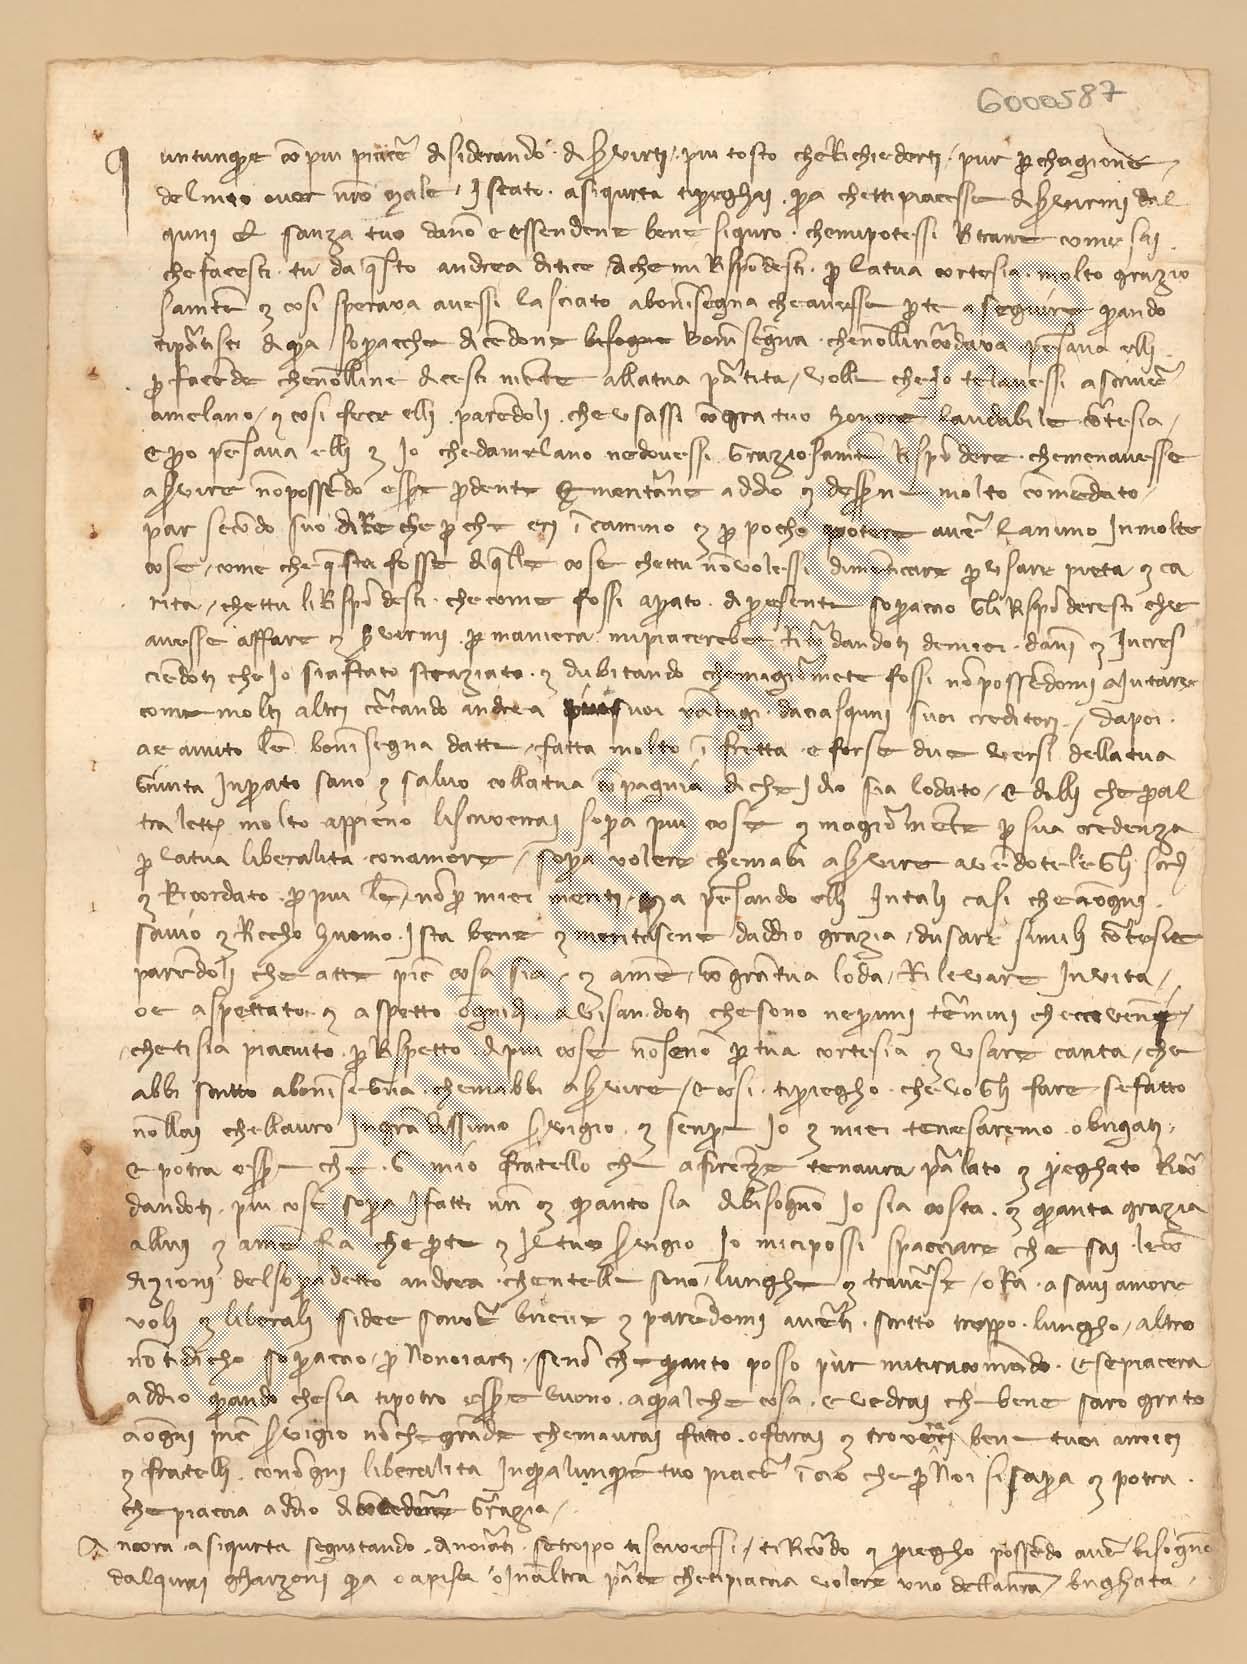 6000587
untunque con piu piacer disiderando di servirti piu tosto che Richiederti pur per chagione
del meo over nro male I stato a siqurta ti preghai qua chetti piacesse di servirmi dal
quni sanza tuo danno essendone bene siquro che mi potessi Ritrare come sai
che facesti tu da questo andrea di tice di che mi Rispondesti per la tua cortesia molto grazio
samente e cosi sperava avessi lasciato a bonisegna che avesse per te a seguire quando
ti partisti di qua sopra cche dicendone bonisegna che nolli ricordava pensava elli
per facende che nolline dicesti niente alla tua partita volle che Io telavessi a scriver
a melano e cosi fece elli parendoli che usassi con gra tuo honore laudabile cortesia
e pero pensava elli e Io che da melano ne dovessi graziosamente Rispondere che me navesse
a servire non possendo
par secondo suo dire che per che eri in camino e per poche potere aver lanimo In molte
cose come che questa fosse di quelle cose chettu non volessi dimenticare per usare pieta e ca
rita chettu li Rispondesti che come fossi a prato di presente sopra cio gli Risponderesti che
avesse affare e servirmi per maniera mi piacerebe Ricordandoti de miei danni e Incres
ciendoti che Io sia stato straziato e dubitando che magiormente fossi non possendomi aiutare
come molti altri cercando andrea suoi vantagi da ciasquni suoi creditori dapoi
ae avuto bonisegna datte fatta molto in fretta e forse due versi della tua
giunta In prato sano e salvo colla tua conpagnia di che Idio sia lodato e dilli che per al
tra lettera molto appieno li scriverrai sopra piu cose e magiormente per sua credenza
per la tua liberalita con amore sopra volere che mabi a servire avendotele gli
e Ricordato per piu non per miei meriti ma pensando elli In tali casi che a ongni
savio e Riccho huomo Ista bene e meritasene daddio grazia dusare simili cortesie
parendoli che atte cosa sia e ame con gran tua loda Rilevare In vita
oe aspettato e aspetto ongni di avisandoti che sono ne primi termini
che ti sia piaciuto per Rispetto di piu cose non seno per tua cortesia e usare carita che
abbi scritto a bonisegna che mabbi a servire e cosi ti priegho che vogli fare se fatto
nollai chellauro In grandissimo servigio e senpre Io e miei tene saremo obrigati
e potra essere che mio fratello che a firenze te navra parlato e preghato Ricor
dandoti piu cose sopra I fatti nri e quanto sia di bisogno Io sia costa e quanta grazia
allui e ame fia che per te e Il tuo servigio Io mi ci possi spacciare che sai le con
dizioni del sopradetto andrea chentelle sono lunghe e traverse ora a savi amore
voli e liberali si dee scriver brieve e parendomi averti scritto troppo lungho altro
non ti dicho sopra cio per Nonoiarti seno che quanto posso pur mi ti racomando e se piacera
addio quando che sia ti potro essere buono a qualche cosa e vedrai che bene saro grato
a ongni servigio non che grande che mavrai fatto o farai e troverai ben tuoi amici
e fratelli con ongni liberalita In qualunque tuo piacer in cio che per Noi si sapra e potra
che piaccia addio di grazia
Ancora a siqurta seguitando di noiarti se troppo ti scrivessi ti Ricordo e priegho possendo aver bisogno
dalquni gharzoni qua o a pisa o In altra parte che ti piaccia volere uno della nra brighata